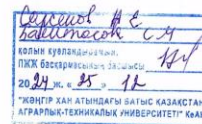 Сарсенов Н Е
С М
ҚОЛЫН КУӘЛАНДЫРАМЫН
ПЖҚ басқармасының басшысы
2024 ж. «25» 12
"ЖӘҢГІР ХАН АТЫНДАҒЫ БАТЫС ҚАЗАҚСТАН
АГРАРЛЫҚ-ТЕХНИКАЛЫҚ УНИВЕРСИТЕТІ" КеАҚ